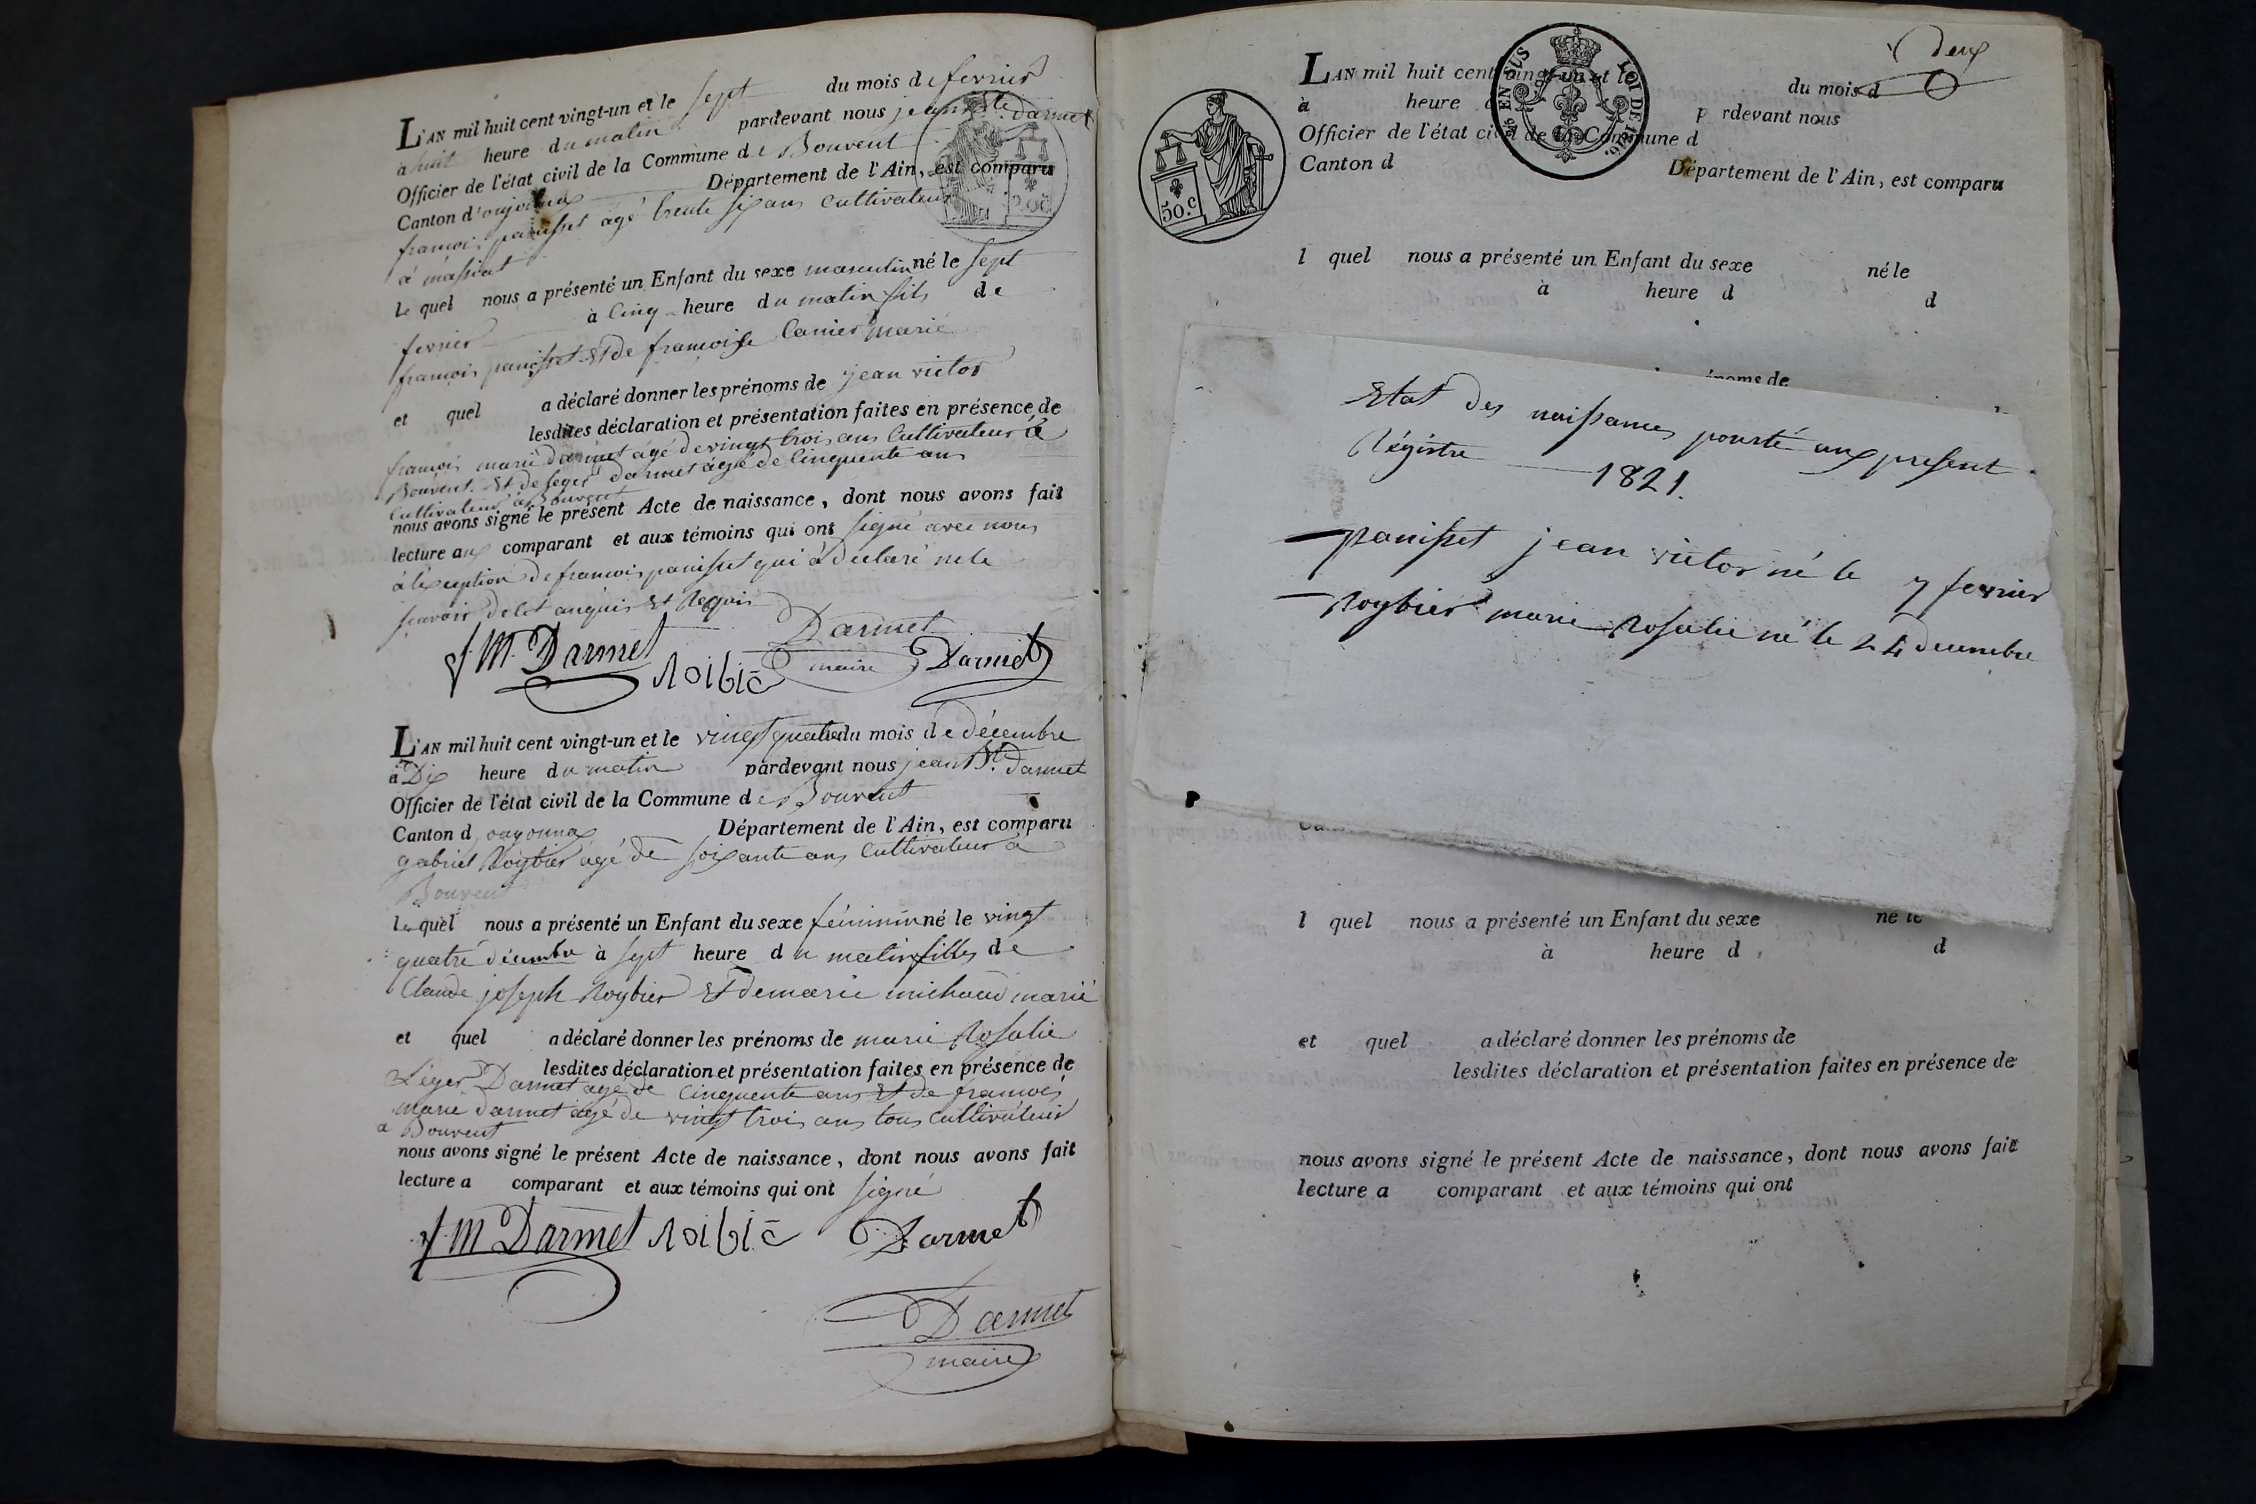 L'AN mil huit cent vingt-un et le sept du mois de fevrier
à huit heure du matin pardevant nous jean Bte. darmet
Officier de l'état civil de la Commune de Bouvent
Canton d'oujonnax Département de l'Ain, est comparu
francois panisset agé trente six ans cultivateur
à massiat
le quel nous a présenté un Enfant du sexe masculin né le sept
fevrier à Cinq heure du matin fils de
francois panisset Et de francoise Carrier marié
et quel a déclaré donner les prénoms de jean victor
lesdites déclaration et présentation faites en présence de
francois marie Darmet agé de vingt trois ans Cultivateur à
Bouvent. Et de leger darmet agé de Cinquente ans
Cultivateur à Bouvent
nous avons signé le présent Acte de naissance, dont nous avons fait
lecture aux comparant et aux témoins qui ont signé avec nous
à l'exception de francois panisset qui à declaré ne le
savoir de Cet anquis Et Requis
f. M. Darmet Roibié Darmet maire Darmet
L'AN mil huit cent vingt-un et le vingt quatre du mois de décembre
à Dix heure du matin pardevant nous jean Bte. darmet
Officier de l'état civil de la Commune de Bouvent
Canton d oayonnax Département de l'Ain, est comparu
gabriel Roybier agé de soixante ans Cultivateur a
Bouvent
le quel nous a présenté un Enfant du sexe féminin né le vingt
quatre décembre à sept heure du matin filles de
Claude joseph Roybier Et de marie michaud marié
et quel a déclaré donner les prénoms de marie Rosalie
lesdites déclaration et présentation faites en présence de
Léger Darmet agé de Cinquente ans Et de francois
marie darmet agé de vingt trois ans tous Cultivateur
a Bouvent
nous avons signé le présent Acte de naissance, dont nous avons fait
lecture a comparant et aux témoins qui ont signé
f. M Darmet Roibié Darmet
Darmet
maire
deux
L'AN mil huit cent vingt-un et le du mois d
à heure d p rdevant nous
Officier de l'état civil de la Commune d
Canton d Département de l'Ain, est comparu
50.c
EN SUS LOI DE 1816.
l quel nous a présenté un Enfant du sexe né le
à heure d d
énoms de
Etat des naissances pourté aux present
Régistre 1821.
panisset jean victor né le 7 fevrier
Roybier marie Rosalie né le 24 decembre
l quel nous a présenté un Enfant du sexe né le
à heure d d
et quel a déclaré donner les prénoms de
lesdites déclaration et présentation faites en présence de
nous avons signé le présent Acte de naissance, dont nous avons fait
lecture a comparant et aux témoins qui ont